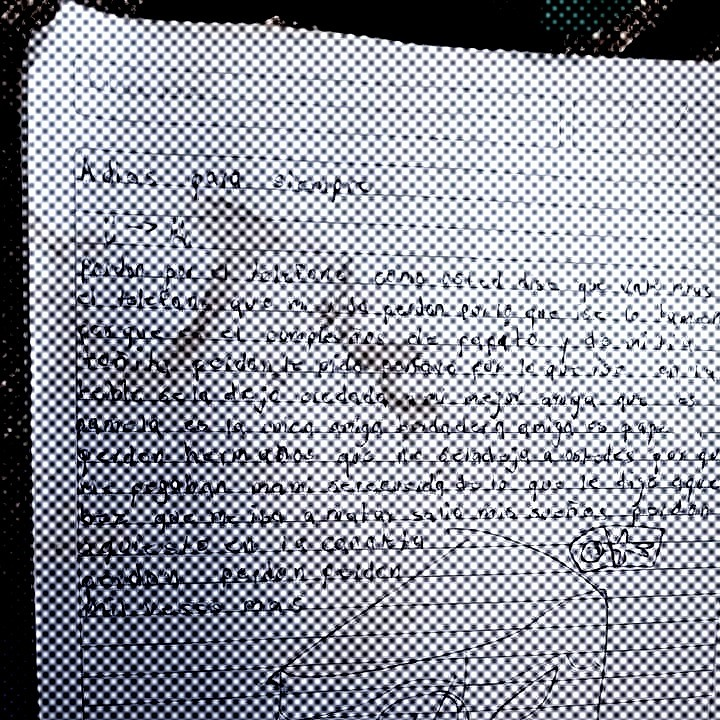 Adios para siempre
perdon por el telefono como osted dise que vale mas
el telefono que mi vida perdon por lo que ise lo lamen
porque es el cumpleaños de papito y de mi tiu
toñita perdon le pido por lo que ise en la
table se la dejo a mi mejor amiga que es
pamela es la unica amiga berdadera amiga es pape
perdon hermanos que no se la deja a ostedes por qu
me pegaban mami de lo que le dije aque
bez que me iba a matar mis sueños perdon
aqui esto en la canaleta
perdon perdon perdon
mil veses mas